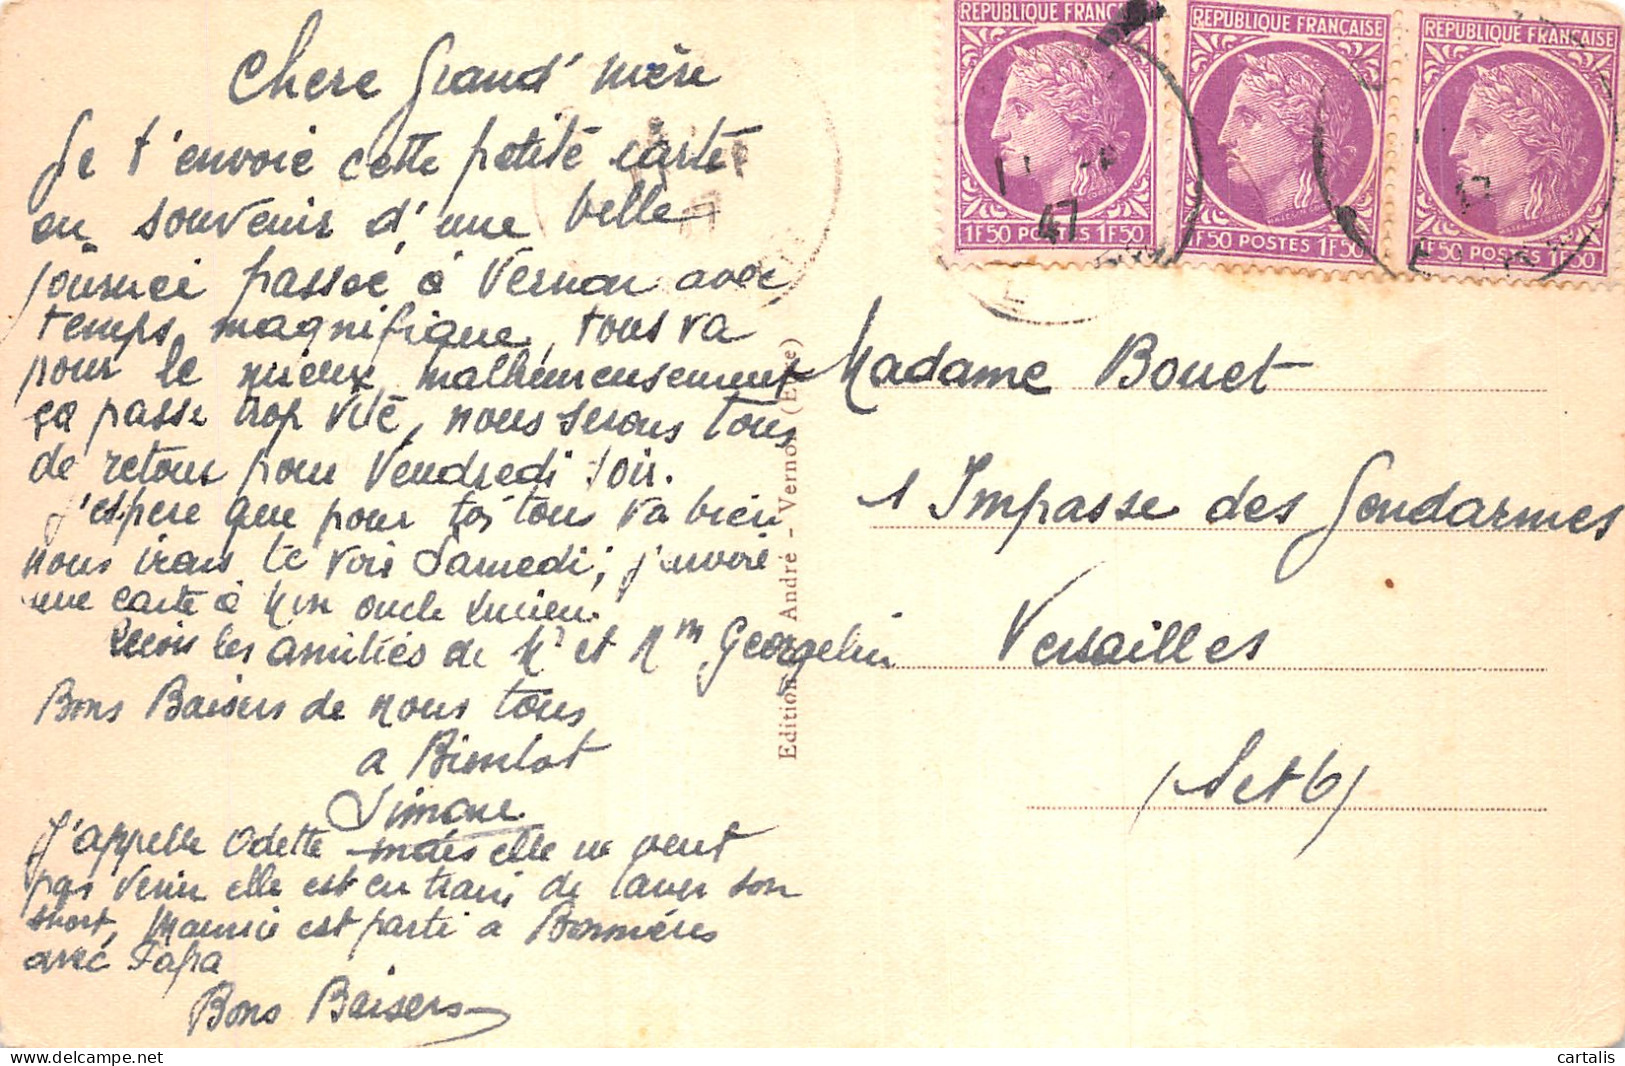 Chere Grand' mère
Je t'envoie cette petite carte
en souvenir d'une belle
journée passée à Vernon avec
temps magnifique, tous va
pour le mieux malheureusement
ça passe trop vite, nous serons tous
de retour pour Vendredi soir.
J'espere que pour toi tous va bien
nous irons te voir Samedi, j'envoie
une carte à Mon oncle Lucien.
Recois les amitiés de Mr et Mm Georgelin
Bons Baisers de nous tous
a Bientot
Simone
J'appelle Odette mais elle ne veut
pas venir elle est en train de laver son
short, Maurice est parti a Bonnières
avec Papa
Bons Baisers
Edition André - Vernon (Eure)
REPUBLIQUE FRANÇAISE
1F50 POSTES 1F50
47
REPUBLIQUE FRANÇAISE
1F50 POSTES 1F50
REPUBLIQUE FRANÇAISE
1F50 POSTES 1F50
Madame Bouet
1 Impasse des Gendarmes
Versailles
(Set O)
cartalis